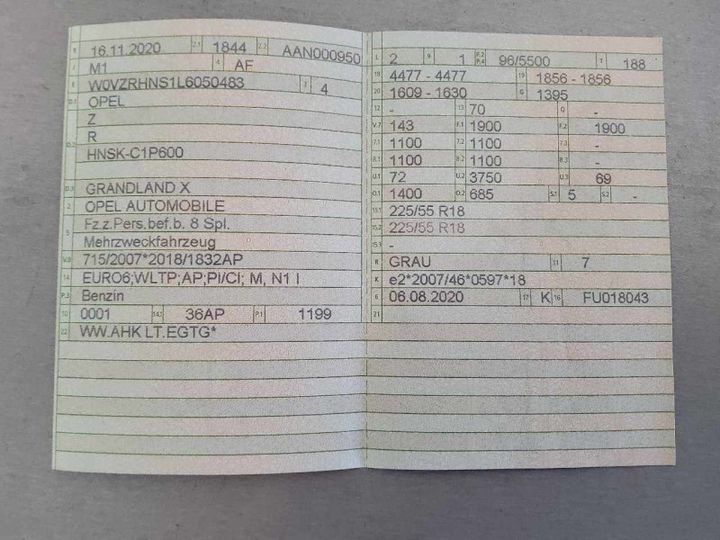 B 16.11.2020 2.1 1844 2.2 AAN000950
J M1 4 AF
E W0VZRHNS1L6050483 3 4
D.1 OPEL
Z
D.2 R
HNSK-C1P600
D.3 GRANDLAND X
2 OPEL AUTOMOBILE
5 Fz.z.Pers.bef.b. 8 Spl.
Mehrzweckfahrzeug
V.9 715/2007*2018/1832AP
14 EURO6;WLTP;AP;PI/CI; M, N1 I
P.3 Benzin
10 0001 14.1 36AP P.1 1199
22 WW.AHK LT.EGTG*
L 2 9 1 P.2 P.4 96/5500 T 188
18 4477 - 4477 19 1856 - 1856
20 1609 - 1630 G 1395
12 - 13 70 Q -
V.7 143 F.1 1900 F.2 1900
7.1 1100 7.2 1100 7.3 -
8.1 1100 8.2 1100 8.3 -
U.1 72 U.2 3750 U.3 69
O.1 1400 O.2 685 S.1 5 S.2 -
15.1 225/55 R18
15.2 225/55 R18
15.3 -
R GRAU 11 7
K e2*2007/46*0597*18
6 06.08.2020 17 K 16 FU018043
21